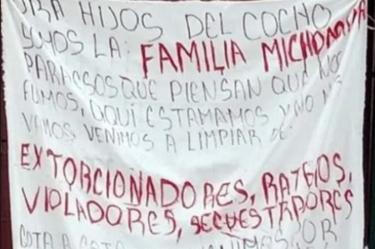 ORA HIJOS DEL COCHO
SOMOS LA: FAMILIA MICHOACANA
PARA ESOS QUE PIENSAN QUE NOS
FUIMOS, AQUI ESTAMAMOS Y NO NOS
VAMOS VENIMOS A LIMPIAR DE:
EXTORCIONADORES, RATEROS,
VIOLADORES, SECUESTRADORES
POR